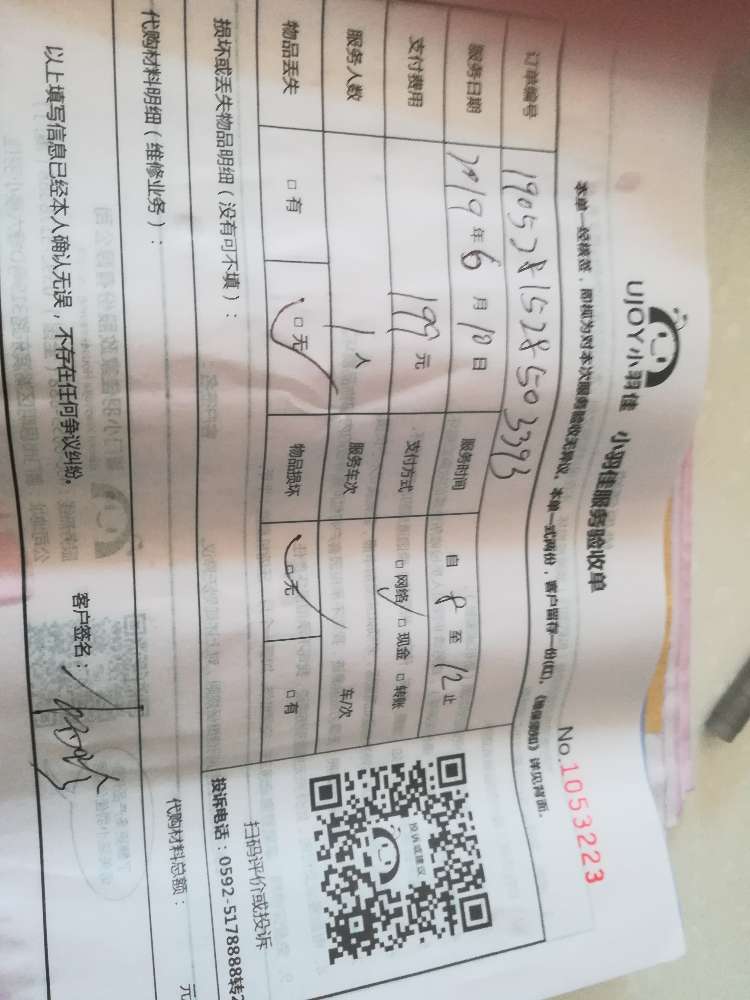 UJOY小羽佳 小羽佳服务验收单
No.1053223
本单一经核签，即视为对本次服务验收无异议。本单一式两份，客户留存一份(红)。《服务须知》详见背面。
订单编号 1905281528503393
服务日期 2019年6月18日 服务时间 自8至12止
支付费用 199元 支付方式 □网络 □现金 □转账
服务人数 1人 服务车次 车/次
物品丢失 □有 □无 物品损坏 □无 □有
投诉或建议
扫码评价或投诉
投诉电话：0592-5178888转2
损坏或丢失物品明细（没有可不填）：
代购材料明细（维修业务）： 代购材料总额： 元
以上填写信息已经本人确认无误，不存在任何争议纠纷。 客户签名：